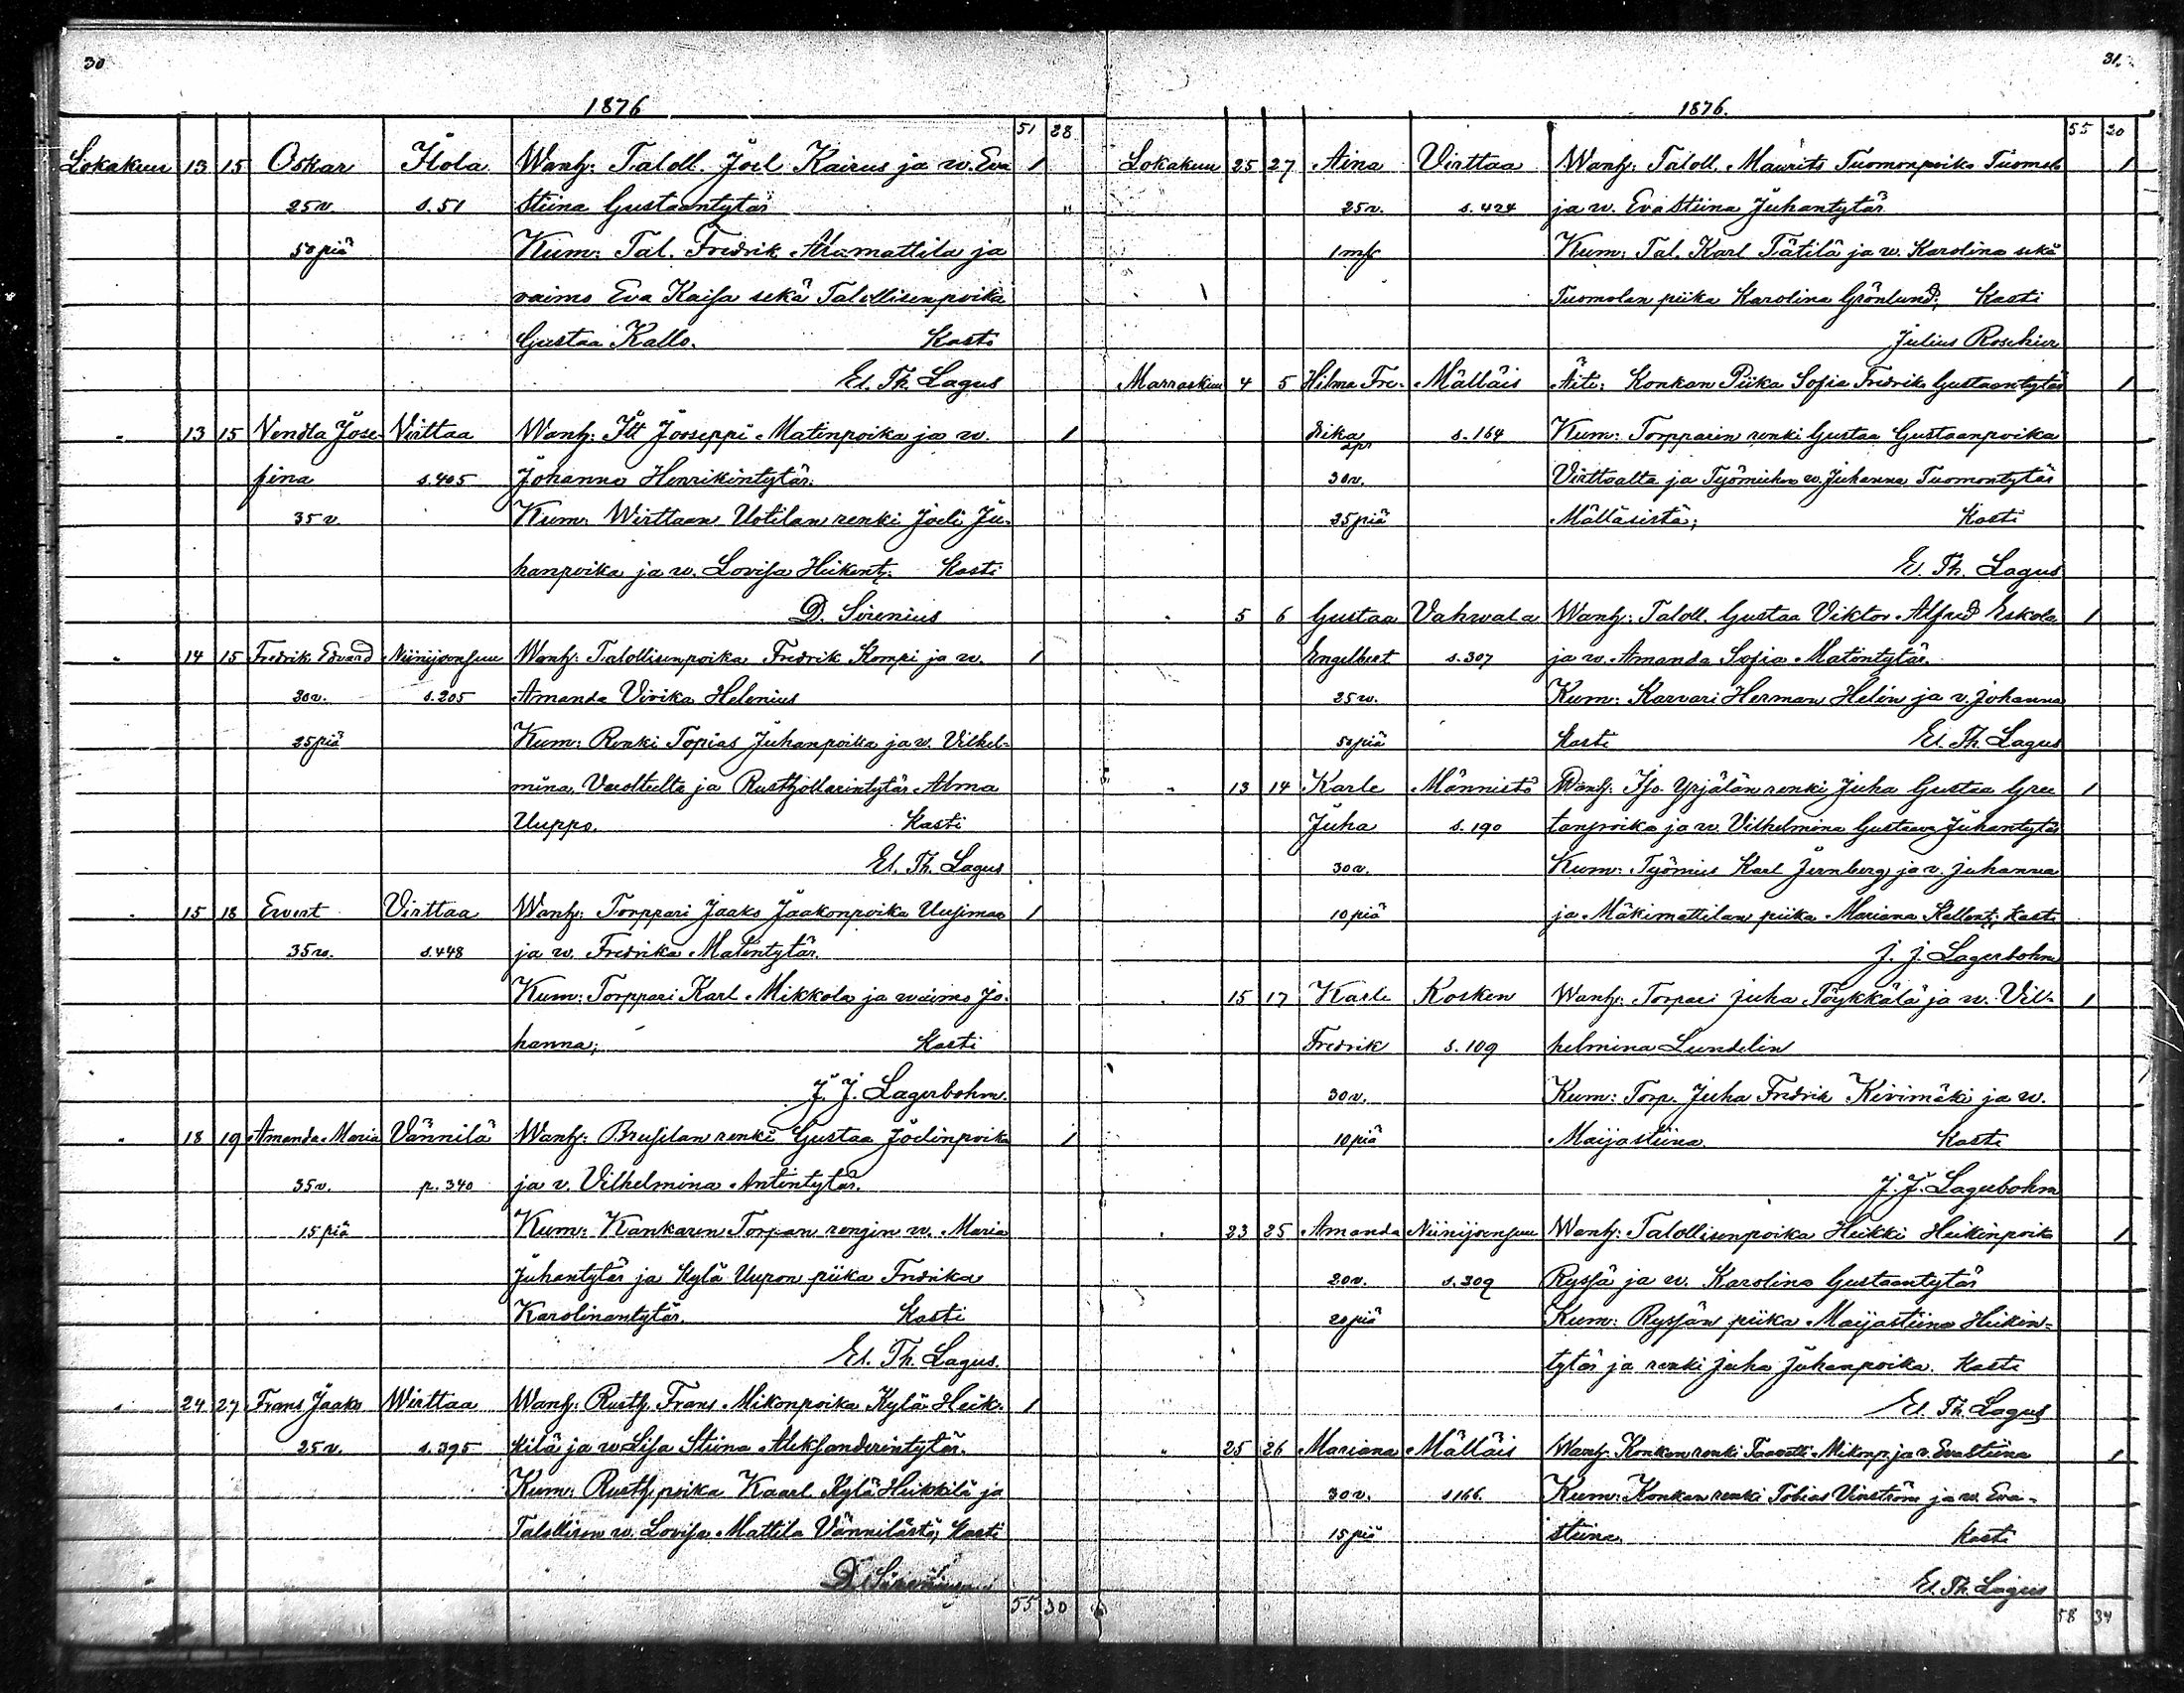 30
1876
51 28
Lokakuu 13 15 Oskar Ilola Wanh: Taloll. Joel Kairus ja w. Eva 1
25 v. s. 51 Stiina Gustaantytär "
50 piä Kum: Tal. Fredrik Alamattila ja
vaimo Eva Kaisa sekä Talollisenpoika
Gustaa Kallo. Kasti
El. Th. Lagus
" 13 15 Vendla Jose- Virttaa Wanh: Itt Jooseppi Matinpoika ja w. 1
fina s. 405 Johanna Henrikintytär.
35 v. Kum: Wirttaan Uotilan renki Joeli Ju-
hanpoika ja w. Lovisa Heikint: Kasti
D. Sirenius
" 14 15 Fredrik Edvard Niinijoensuu Wanh: Talollisenpoika Fredrik Kompi ja w. 1
20 v. s. 205 Amanda Vivika Helenius
25 piä Kum: Renki Topias Juhanpoika ja v. Vilhel-
mina ja Rusthollarintytär Alma
Uuppo. Kasti
El. Th. Lagus
" 15 18 Evert Virttaa Wanh: Torppari Jaako Jaakonpoika Uusimaa 1
35 v. s. 448 ja w. Fredrika Matintytär.
Kum: Torppari Karl Mikkola ja waimo Jo-
hanna; Kasti
J. J. Lagerbohm.
" 18 19 Amanda Maria Vännilä Wanh: renki Gustaa Joelinpoika 1
35 v. p. 340 ja v. Vilhelmina Antintytär.
15 piä Kum: Kankaren Torpan rengin w. Maria
Juhantytär ja Kylä Uupon piika Fredrika
Karolinantytär. Kasti
El. Th. Lagus.
" 24 27 Frans Jaako Wirttaa Wanh: Rusth. Frans Mikonpoika Kylä-Heik- 1
25 v. s. 395 kilä ja w. Lisa Stiina Aleksanderintytär.
Kum: Rusth. poika Kaarl Kylä-Heikkilä ja
Talollisen w. Lovisa Mattila Vännilästä; Kasti
D. Sirenius
55 30
31.
1876.
55 30
Lokakuu 25 27 Aina Virttaa Wanh: Taloll. Maurits Tuomonpoika Tuomola 1
25 v. s. 424 ja w. Eva Stiina Juhantytär
1 mk Kum: Tal. Karl Tätilä ja w. Karolina sekä
Tuomolan piika Karolina Grönlund; Kasti
Julius Roschier
Marraskuu 4 5 Hilma Fre- Mälläis Äiti: Konkan Piika Sofia Fredrika Gustaantytär 1
drika s. 164 Kum: Torpparin renki Gustaa Gustaanpoika
30 v. Virttaalta ja Työmiehen w. Juhanna Tuomontytär
35 piä Mälläsistä; Kasti
El. Th. Lagus
" 5 6 Gustaa Vahwala Wanh: Taloll. Gustaa Viktor Alfred Eskola 1
Engelbert s. 307 ja w. Amanda Sofia Matintytär.
25 w. Kum: Karvari Herman Helin ja v. Johanna
50 piä Kasti El. Th. Lagus
" 13 14 Karle Männistö Wanh: Iso-Yrjälän renki Juha Gustaa 1
Juha s. 190 ja w. Vilhelmina Gustaava Juhantytär
30 v. Kum: Työmies Karl Jernberg ja v. Juhanna
10 piä ja Mäkimattilan piika Mariana Kasti
J. J. Lagerbohm
" 15 17 Karle Kosken Wanh: Torpari Juha Töykkälä ja w. Vil- 1
Fredrik s. 109 helmina Lundelin
30 v. Kum: Torp. Juha Fredrik Kivimäki ja w.
10 piä Maijastiina. Kasti
J. J. Lagerbohm
" 23 25 Amanda Niinijoensuu Wanh: Talollisenpoika Heikki Heikinpoika 1
20 v. s. 309 Ryssä ja w. Karolina Gustaantytär
20 piä Kum: Ryssän piika Maijastiina Heikin-
tytär ja renki Juha Juhanpoika. Kasti
El. Th. Lagus
" 25 26 Mariana Mälläis Wanh: Konkan renki Taavetti Mikonp. ja v. Evastiina 1
30 v. s 166. Kum: Konkan renki Tobias Vinström ja w. Eva-
15 piä stiina. Kasti
El. Th. Lagus
58 34